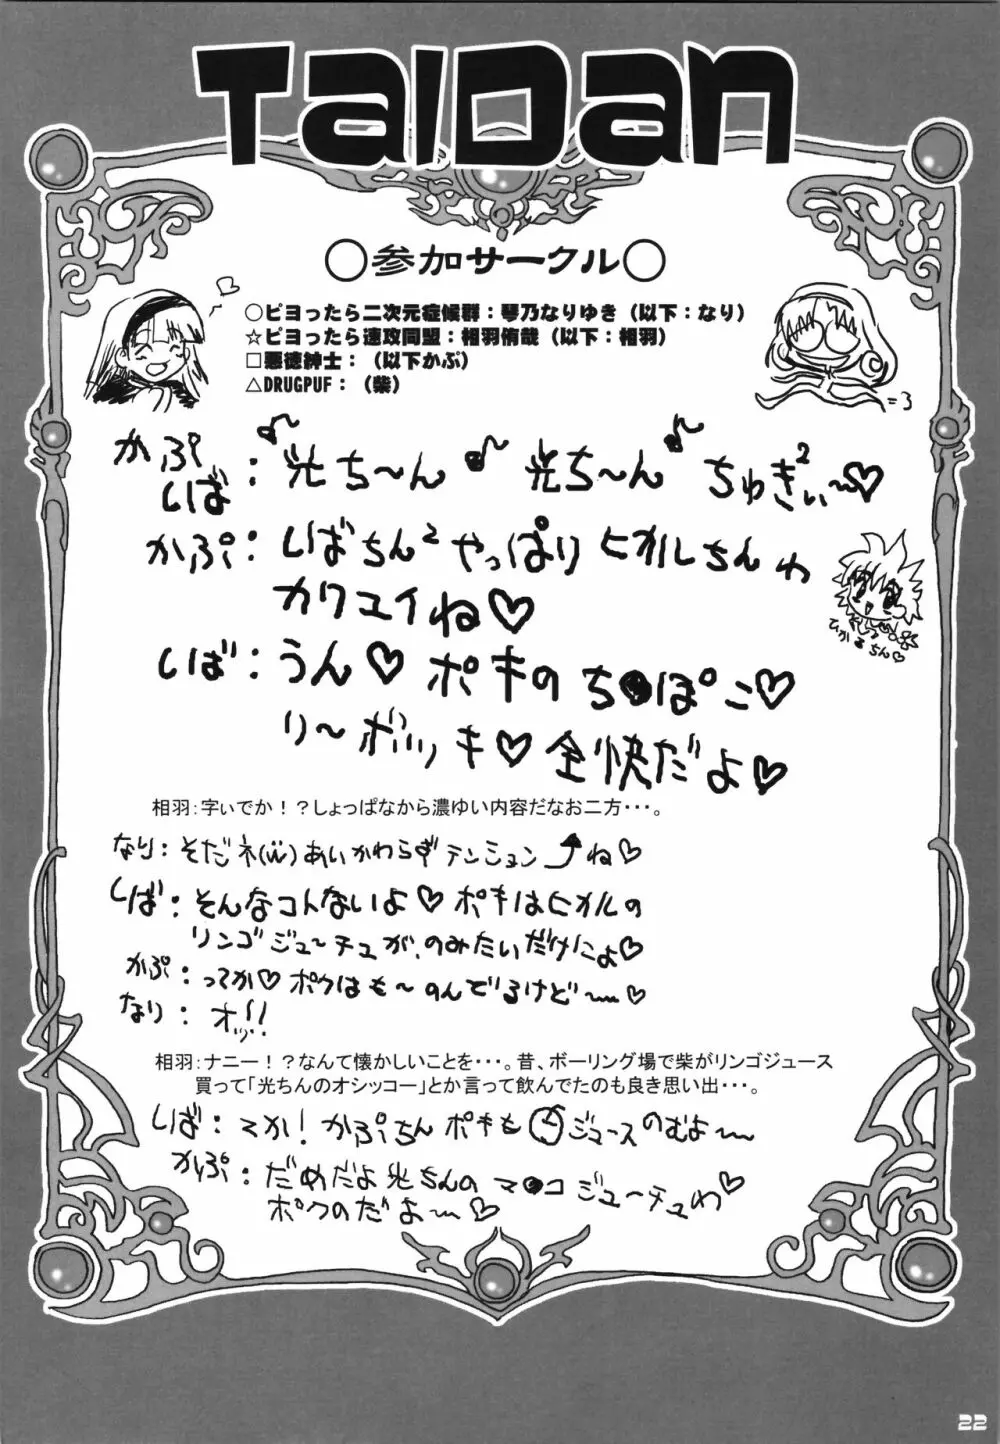 TaiDan
○参加サークル○
○ピヨったら二次元症候群：琴乃なりゆき（以下：なり）
☆ピヨったら速攻同盟：相羽侑哉（以下：相羽）
□悪徳紳士：（以下かぷ）
△DRUGPUF：（柴）
=3
かぷ
しば：♪光ち〜ん♪光ち〜ん♪ちゅきぃ²〜♡
かぷ：しばちん²やっぱりヒカルちんわ
カワユイね♡
ひかるちん♡
しば：うん♡ポキのち●ぽこ♡
リ〜ボッキ♡全快だよ♡
相羽：字ぃでか！？しょっぱなから濃ゆい内容だなお二方・・・。
なり：そだネ(w)あいかわらずテンション⤴ね♡
しば：そんなコトないよ♡ポキはヒカルの
リンゴジューチュが、のみたいだけによ♡
かぷ：ってか♡ポクはも〜のんでるけど〜♡
なり：オッ!!
相羽：ナニー！？なんて懐かしいことを・・・。昔、ボーリング場で柴がリンゴジュース
買って「光ちんのオシッコー」とか言って飲んでたのも良き思い出・・・。
しば：てか！かぷちんポキも ジュースのむよ〜
かぷ：だめだよ光ちんのマ●コジューチュわ♡
ポクのだよ〜♡
22